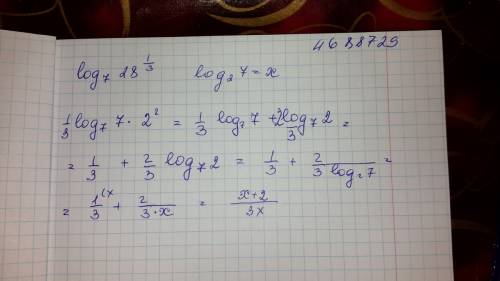 4688729
log₇ 28^(1/3)    log₂ 7 = x
1/3 log₇ 7 · 2² = 1/3 log₇ 7 + 2/3 log₇ 2 =
= 1/3 + 2/3 log₇ 2 = 1/3 + 2/(3 log₂ 7) =
= 1^(x/3 + 2/(3·x) = (x+2)/(3x)